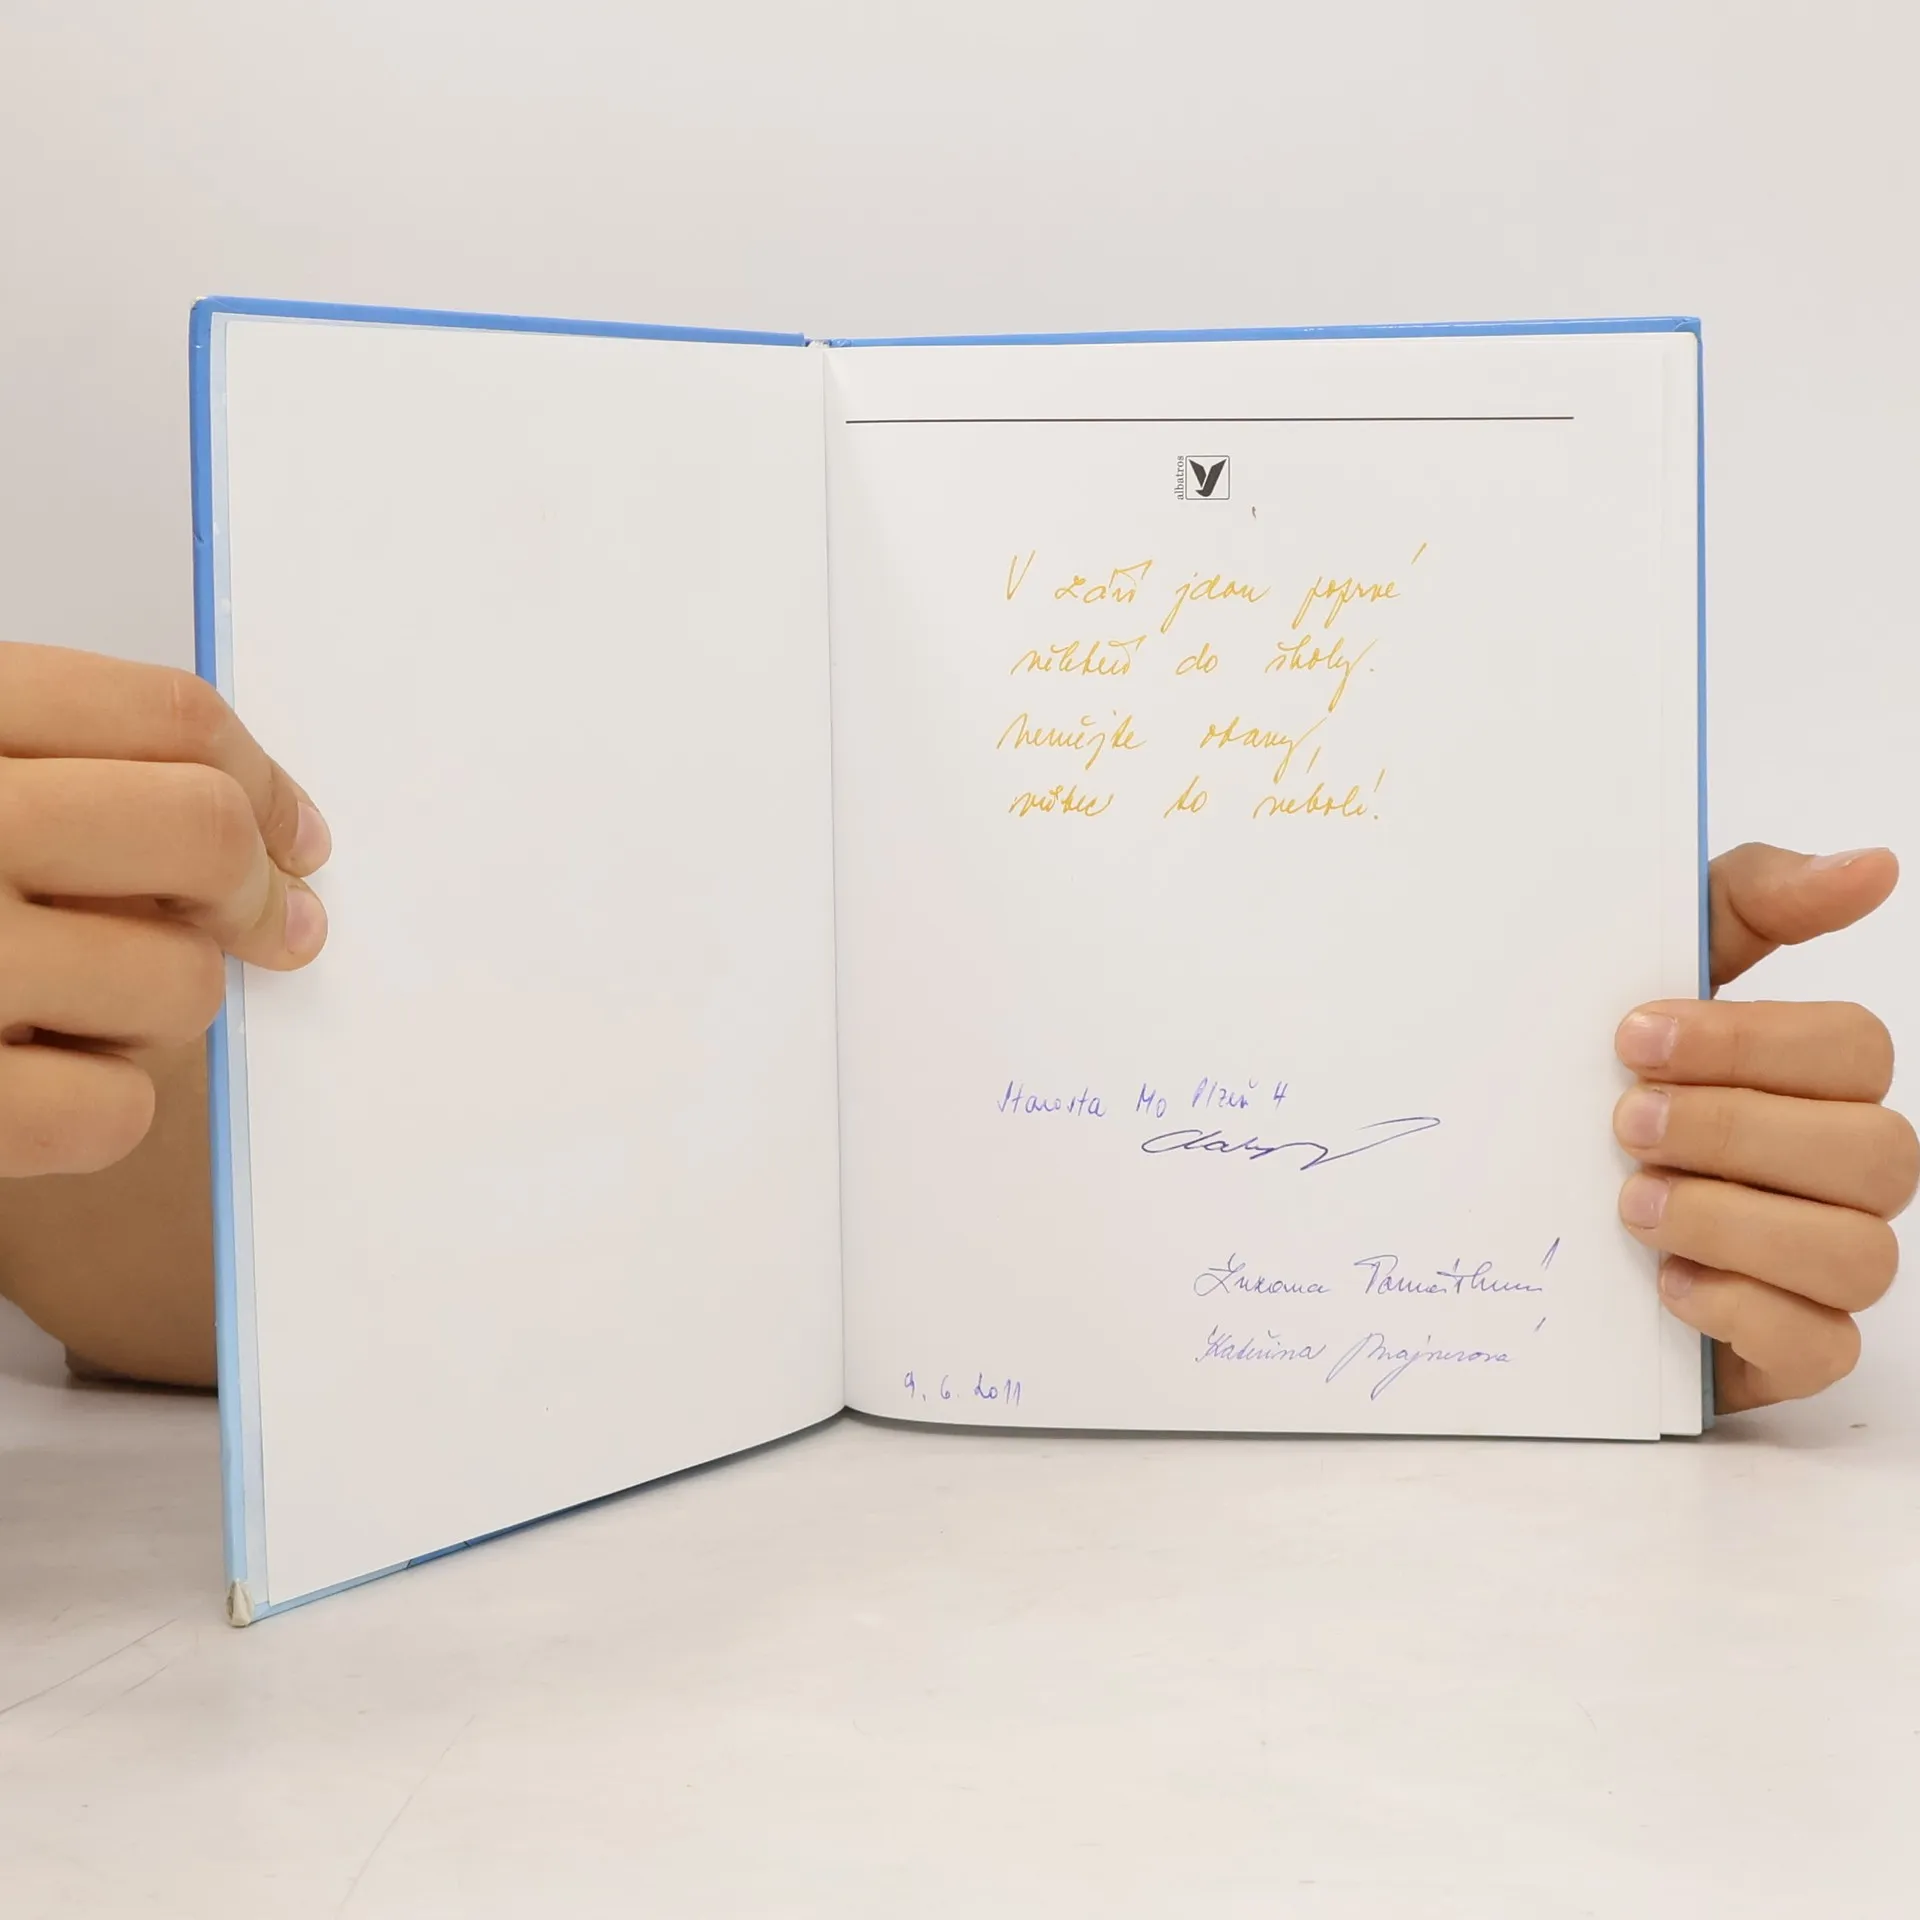 albatros
V září jdou poprvé
někteří do školy.
Nemějte obavy,
vůbec to nebolí!
Starosta MO Plzeň 4
Zuzana
Kateřina Prajnerová
9. 6. 2011